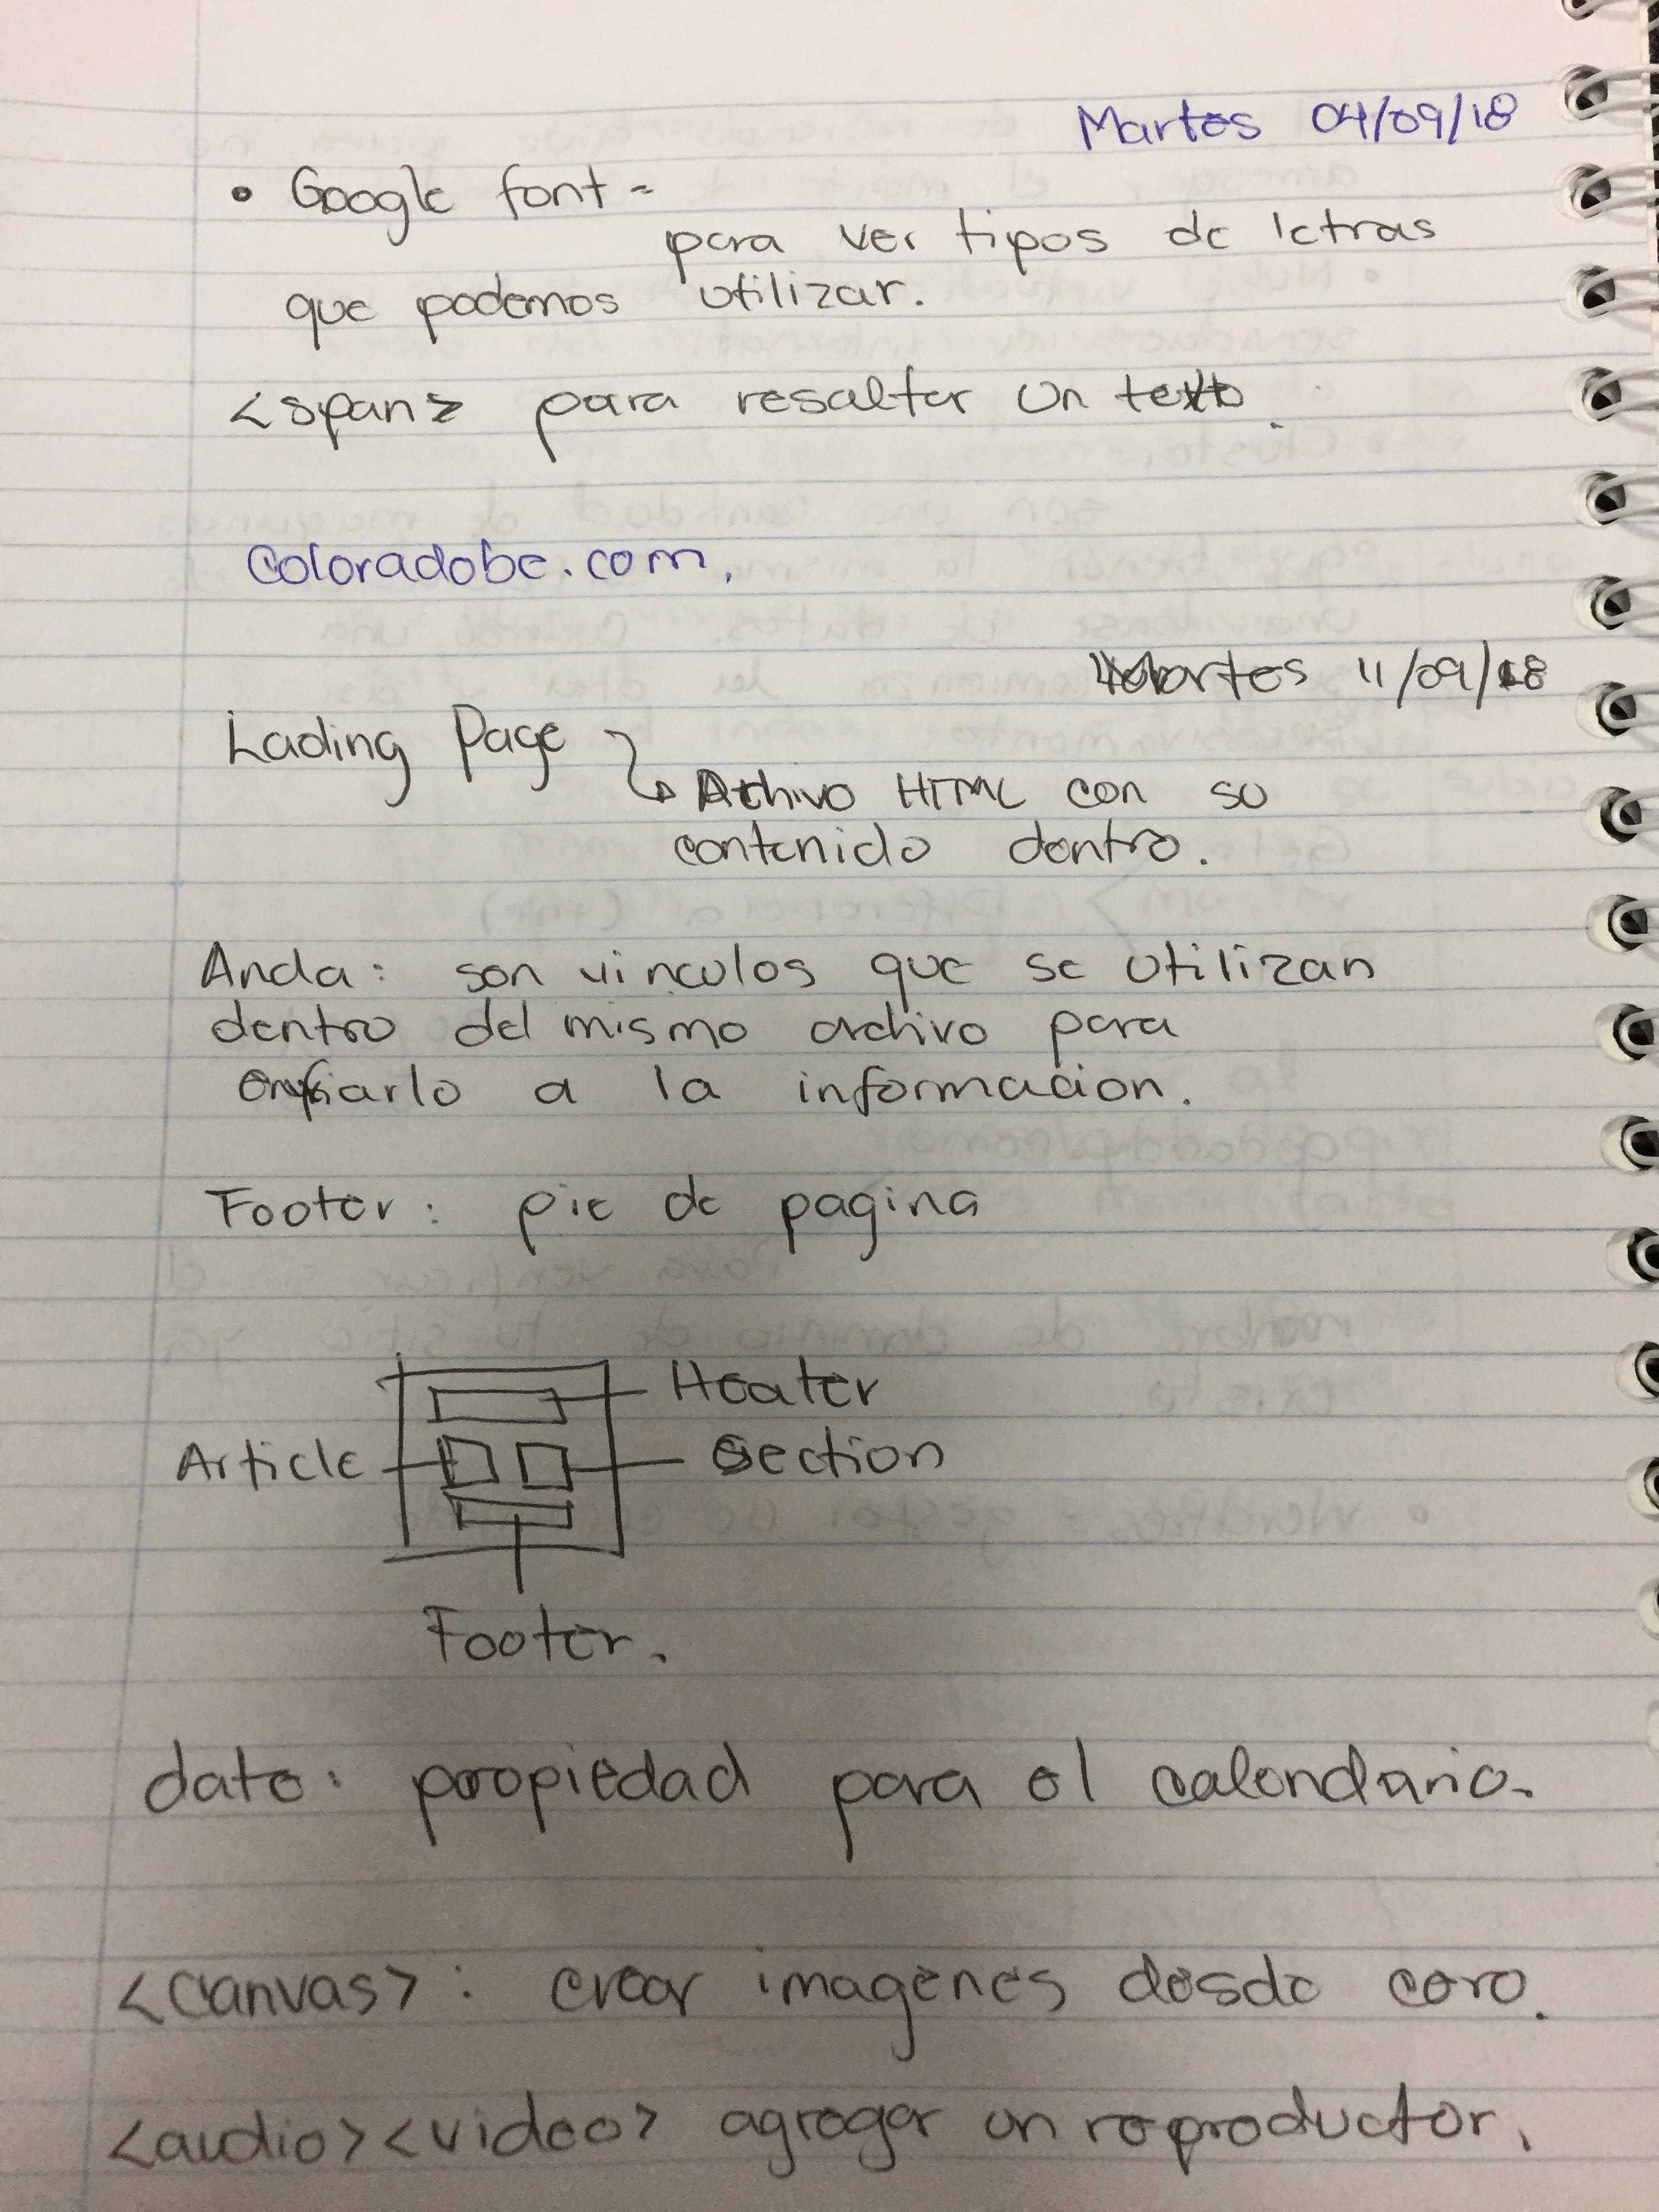 Martes 04/09/18
• Google font -
para ver tipos de letras
que podemos utilizar.
<span> para resaltar un texto.
coloradobe.com,
Martes 11/09/18
Lading Page
Archivo HTML con su
contenido dentro.
Ancla: son vinculos que se utilizan
dentro del mismo archivo para
a la informacion.
Footer: pie de pagina
Heater
Article
Section
Footer.
date: propiedad para el calendario.
<canvas>: crear imagenes desde cero.
<audio><video> agregar un reproductor.